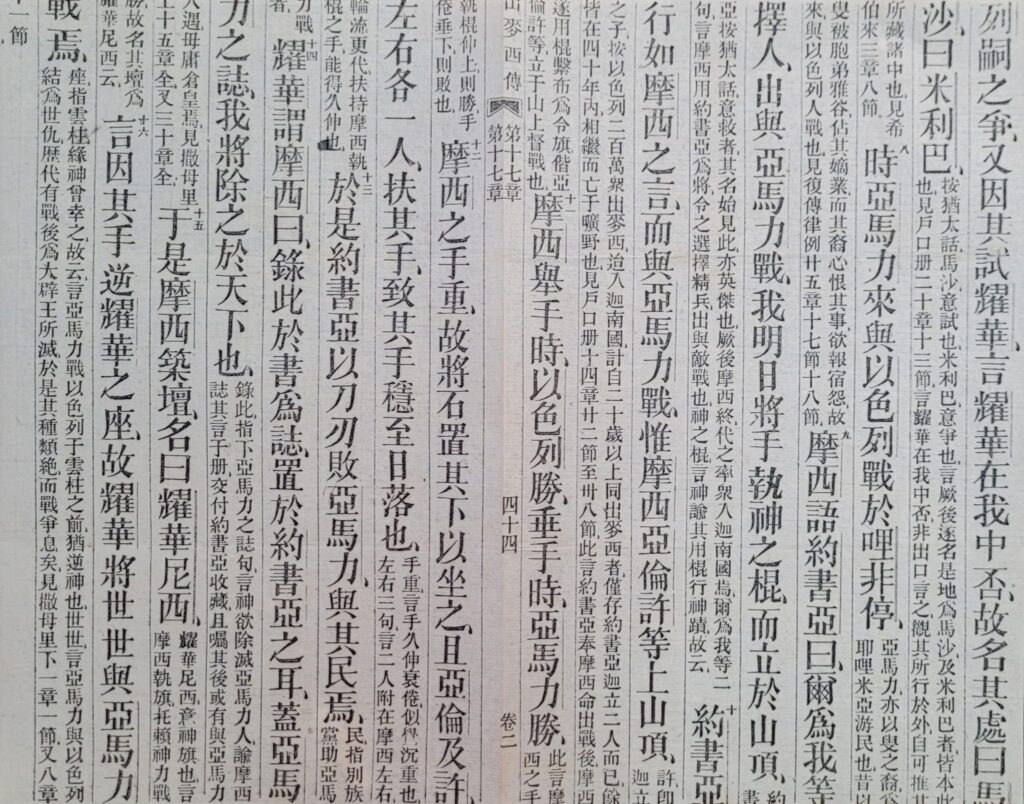 列嗣之爭、又因其試耀華言耀華在我中否、故名其處曰馬
沙、曰米利巴、
按猶太話馬沙意試也米利巴意爭也言厥後遂名是地爲馬沙及米利巴者皆本此
也見戶口册二十章十三節言耀華在我中否非出口言之觀其所行於外自可推
所藏諸中也見希
伯來三章八節
八時亞馬力來與以色列戰於哩非停、
亞馬力亦以叟之裔
耶哩米亞游民也昔以
叟被胞弟雅谷佔其嫡業而其裔心恨其事欲報宿怨故
來與以色列人戰也見復傳律例廿五章十七節十八節
九摩西語約書亞曰、爾爲我等
擇人、出與亞馬力戰、我明日將手執神之棍、而立於山項、
約
書
亞按猶太話意救者其名始見此亦英傑也厥後摩西終代之率衆入迦南國焉爾爲我等二
句言摩西用約書亞爲將令之選擇精兵出與敵戰也神之棍言神諭其用棍行神蹟故云
十約書亞
行如摩西之言、而與亞馬力戰、惟摩西亞倫許等上山項、
許印
迦
之予按以色列二百萬衆出麥西迨入迦南國計自二十歲以上同出麥西者僅仔約書亞迦立二人而已餘
皆在四十年內相繼而亡于曠野也見戶口册十四章廿二節至卅八節此言約書亞奉摩西命出戰後摩西
遂用棍繫布爲令旗偕亞
倫許等立于山上督戰也
十一摩西舉手時、以色列勝、垂手時、亞馬力勝、
此言摩
西之手
山麥西傳
第十七章
第十七章
四十四
卷二
執棍仰上則勝手
倦垂下則敗也
十二摩西之手重、故將石置其下以坐之、且亞倫及許
左右各一人、扶其手、致其手穩至日落也、
手重言手久伸衰倦似覺沉重也
左右三句言二人附在摩西左右
輪流更代扶持摩西執
棍之手能得久伸也
十三於是約書亞以刀刃敗亞馬力、與其民焉、
民指別族
黨助亞馬
力戰
者
十四耀華謂摩西曰、錄此於書爲誌、置於約書亞之耳、蓋亞馬
力之誌、我將除之於天下也、
錄此指下亞馬力之誌句言神欲除滅亞馬力人諭摩西
誌其言于册交付約書亞收藏且囑其後或有與亞馬力
人遇毋庸倉皇焉見撒母里
上十五章全又三十章全
十五于是摩西築壇、名曰耀華尼西、
耀華尼西意神旗也言
摩西執旗托賴神力戰
勝故名其壇爲
耀華尼西云
十六言因其手逆耀華之座、故耀華將世世與亞馬力
戰焉、
座指雲柱緣神曾幸之故云言亞馬力戰以色列于雲柱之前猶逆神也世世言亞馬力與以色列
結爲世仇歷代有戰後爲大辟王所滅於是其種類絶而戰爭息矣見撒母里下一章一節又八章
十一節